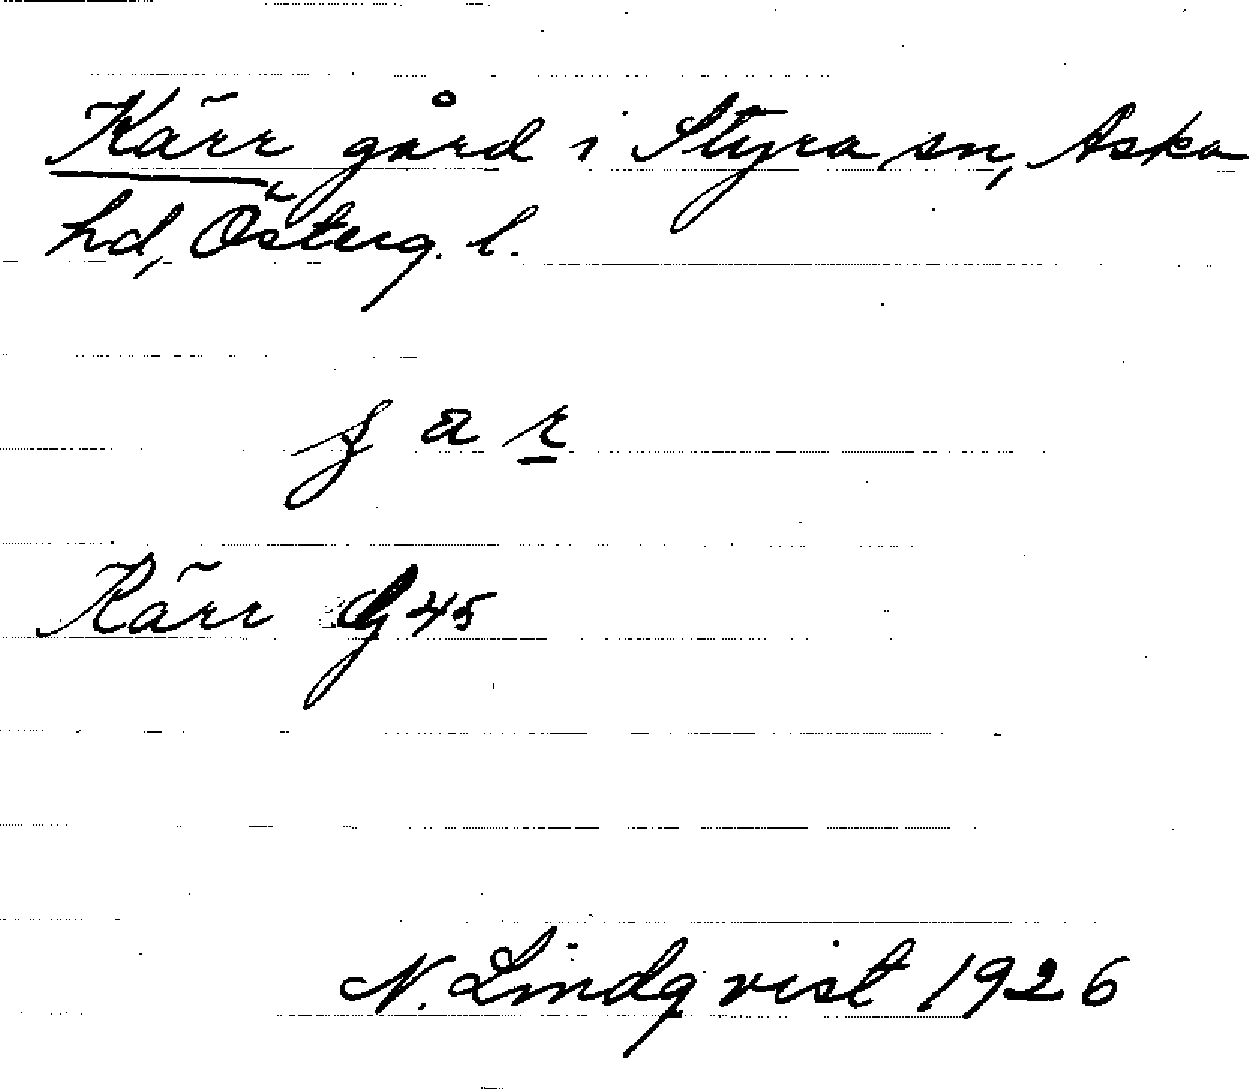 Kärr gård i Styra sn, Aska
hd, Österg. l.
f a r
Kärr Gg 45
N. Lindqvist 1926